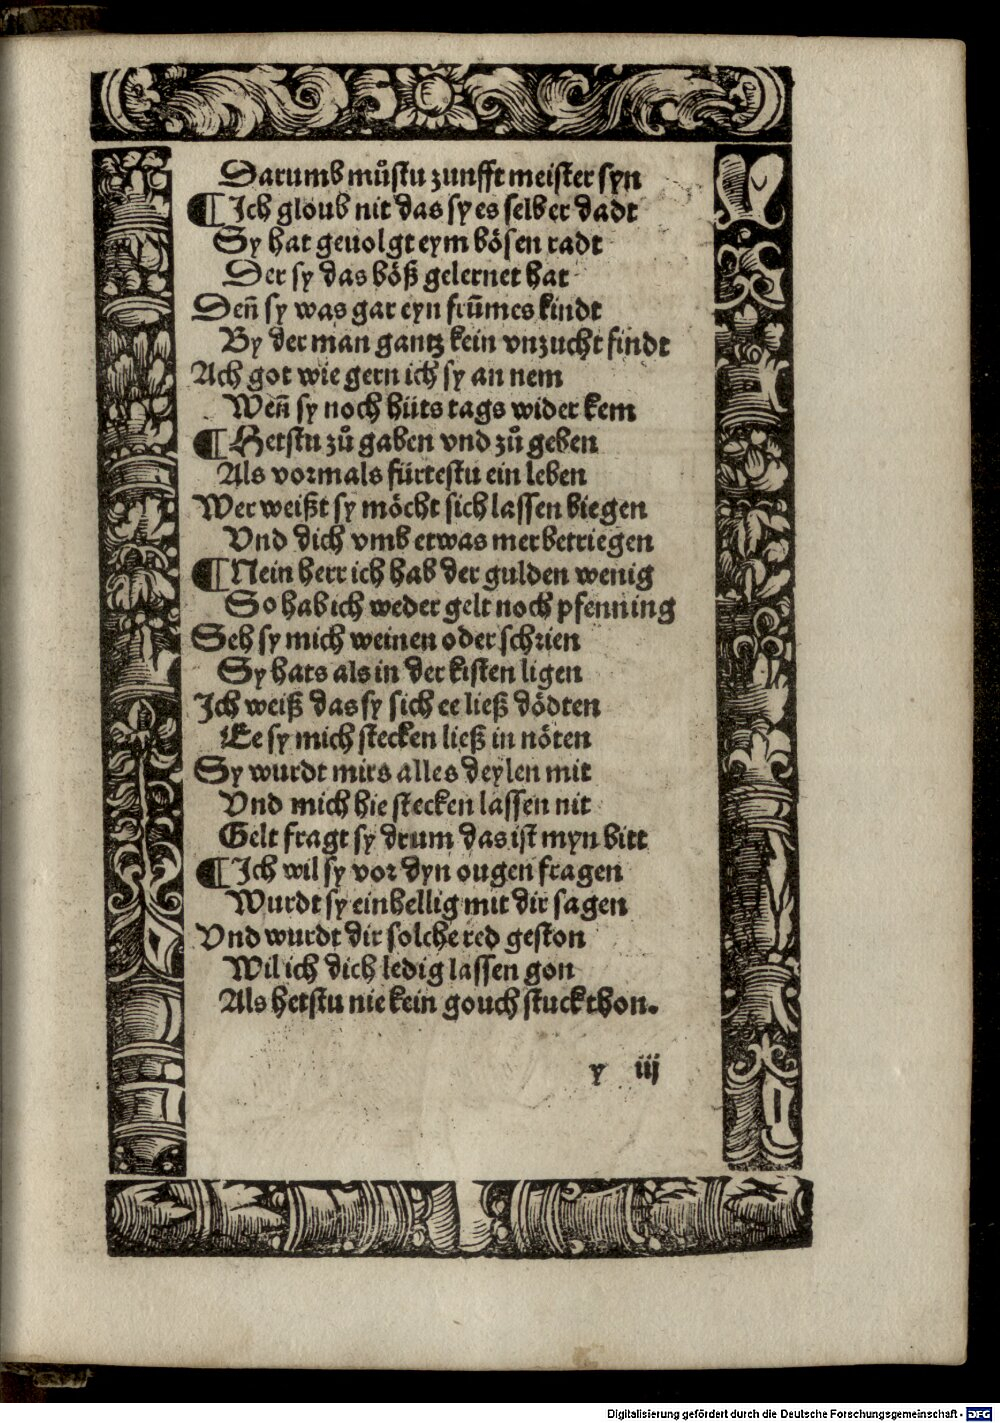 Darumb můstu zunfft meister syn
¶ Ich gloub nit das sy es selber dadt
Sy hat geuolgt eym bösen radt
Der sy das böß gelernet hat
Deñ sy was gar eyn frūmes kindt
By der man gantz kein vnzucht findt
Ach got wie gern ich sy an nem
Weñ sy noch hüts tags wider kem
¶ Hetstu zů gaben vnd zů geben
Als vormals fürtestu ein leben
Wer weißt sy möcht sich lassen biegen
Vnd dich vmb etwas mer betriegen
¶ Nein herr ich hab der gulden wenig
So hab ich weder gelt noch pfenning
Seh sy mich weinen oder schrien
Sy hats als in der kisten ligen
Ich weiß das sy sich ee ließ dödten
Ee sy mich stecken ließ in nöten
Sy wurdt mirs alles deylen mit
Vnd mich hie stecken lassen nit
Gelt fragt sy drum das ist myn bitt
¶ Ich wil sy vor dyn ougen fragen
Wurdt sy einhellig mit dir sagen
Vnd wurdt dir solche red geston
Wil ich dich ledig lassen gon
Als hetstu nie kein gouch stuck thon.
y iij
Digitalisierung gefördert durch die Deutsche Forschungsgemeinschaft - DFG